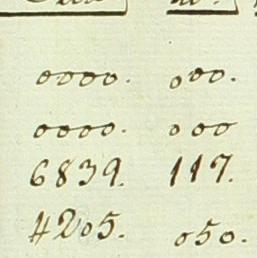 0000. 000.
0000. 000
6839. 117.
4205. 050.